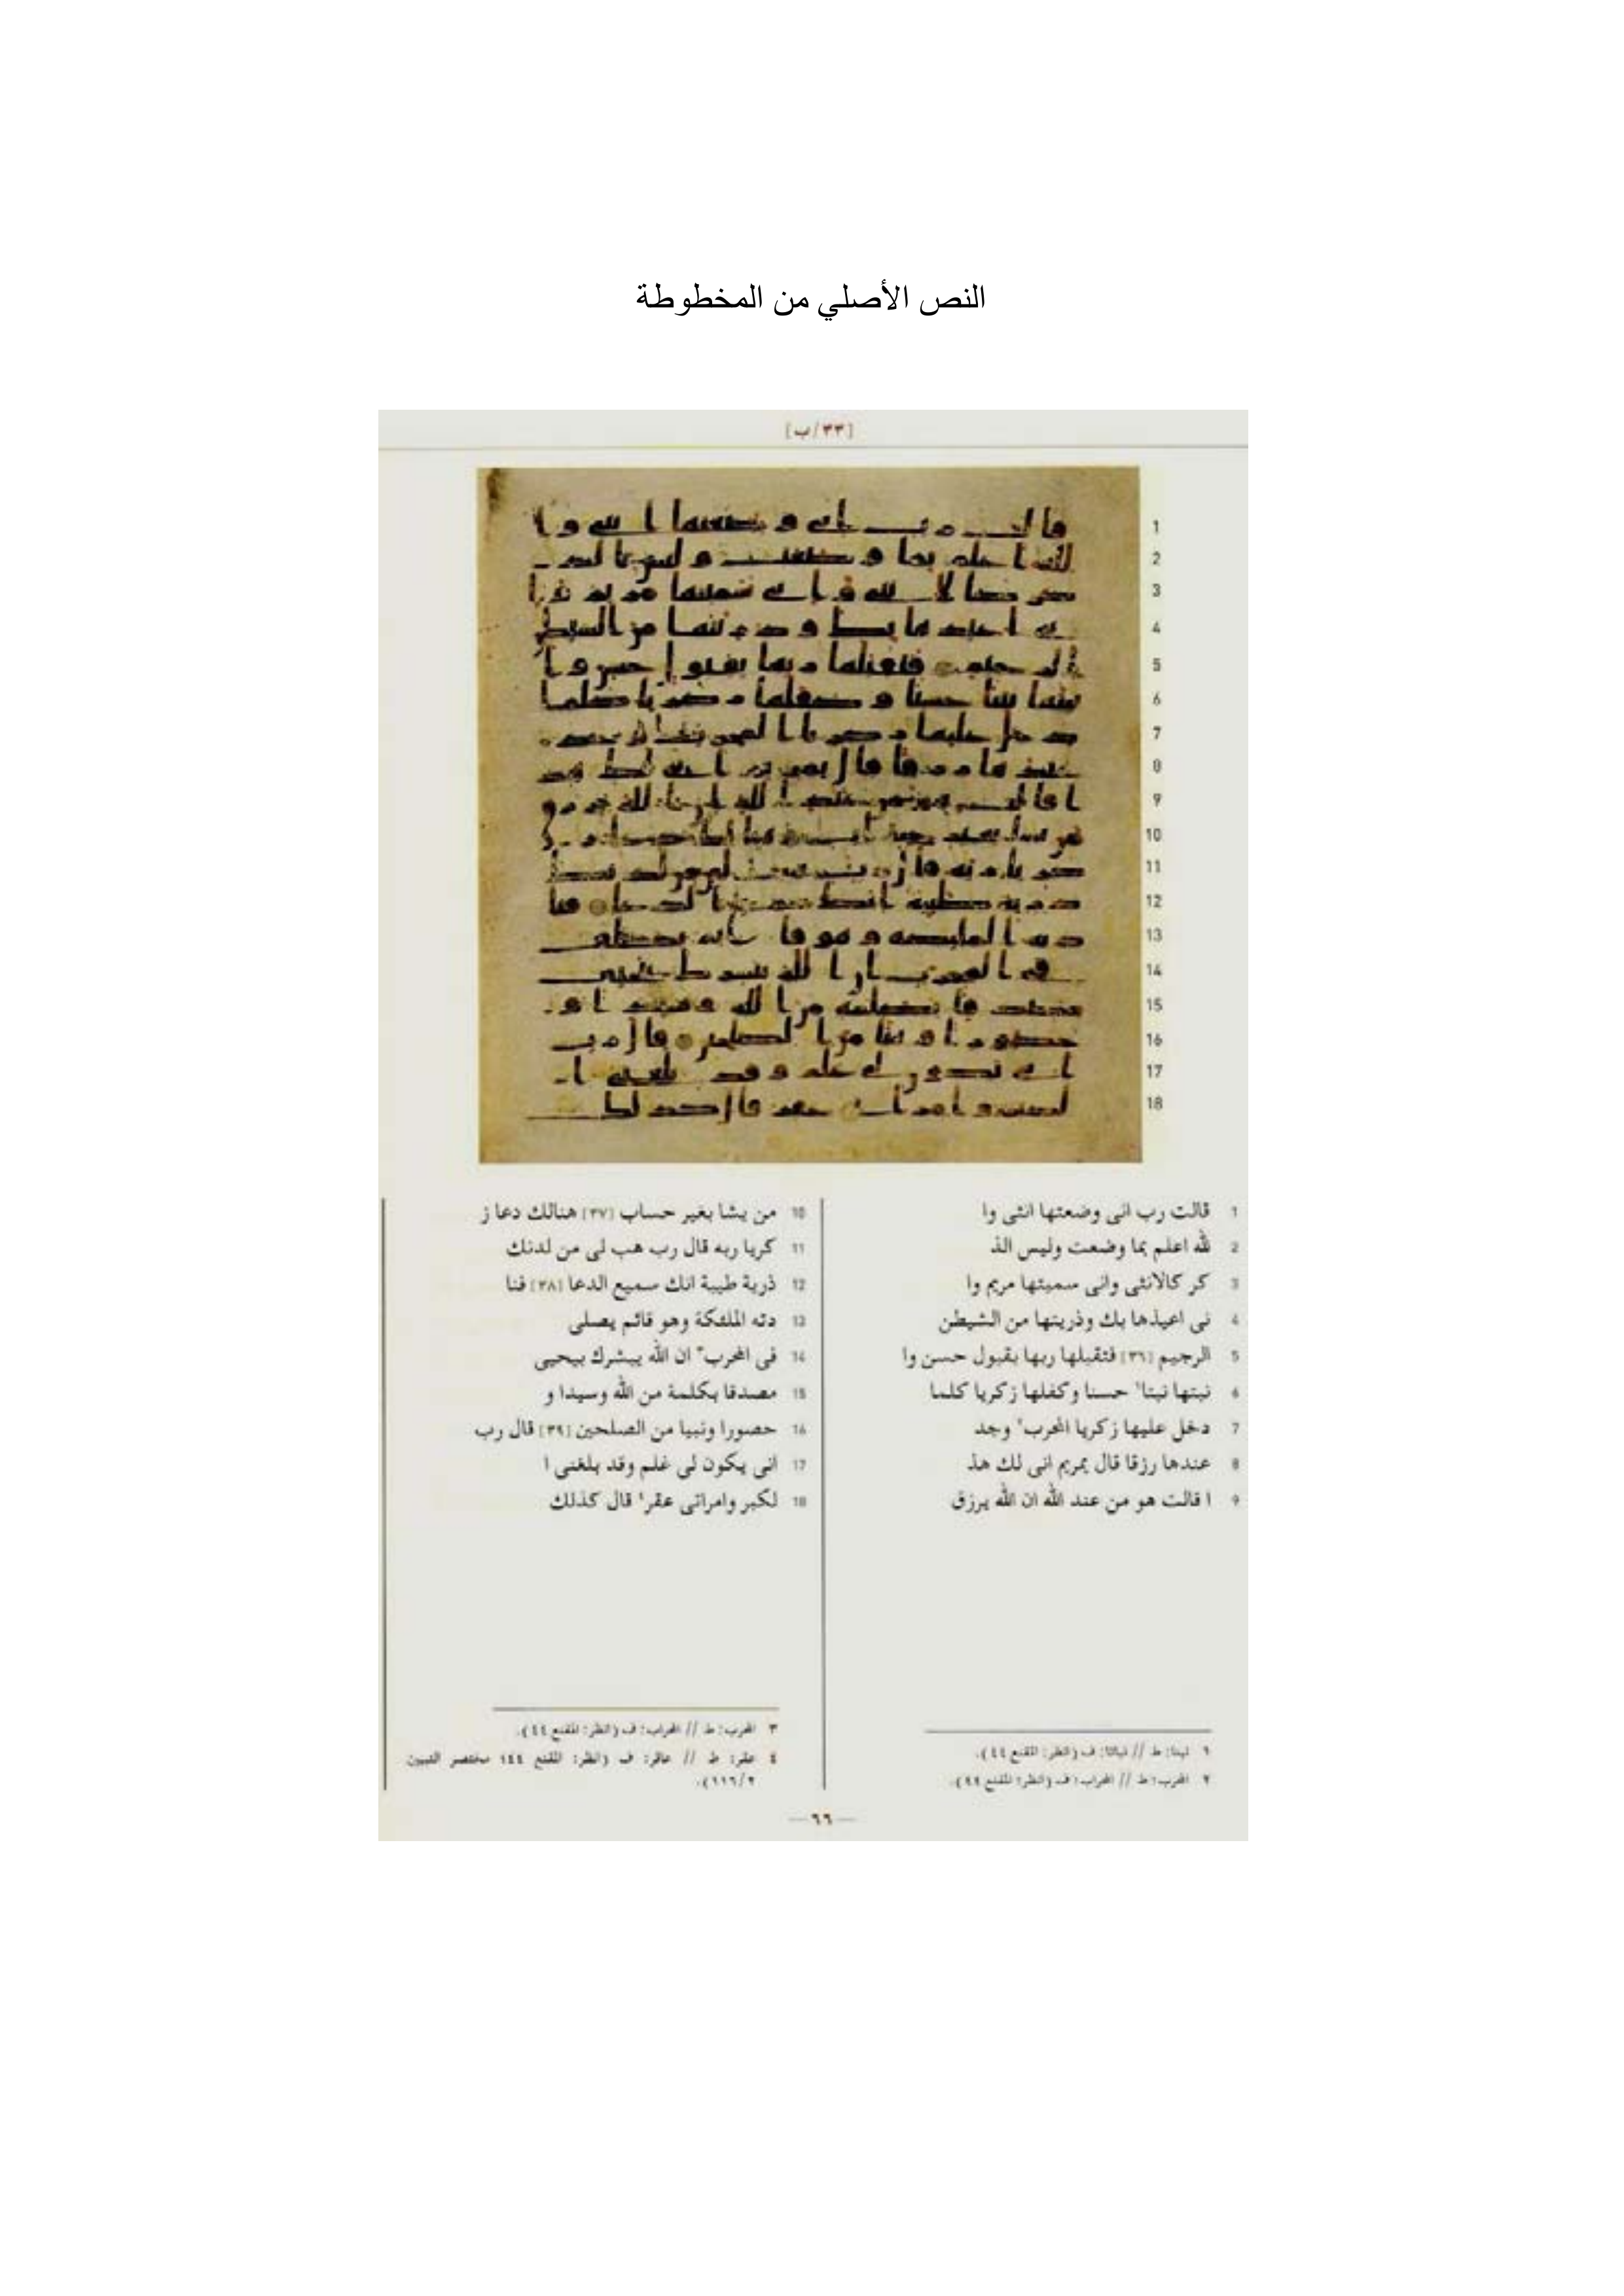 النص الأصلي من المخطوطة
[٣٣/ب]
1
2
3
4
5
6
7
8
9
10
11
12
13
14
15
16
17
18
1 قالت رب انى وضعتها انثى وا
2 لله اعلم بما وضعت وليس الذ
3 كر كالانثى وانى سميتها مريم وا
4 نى اعيذها بك وذريتها من الشيطن
5 الرجيم [٣٦] فتقبلها ربها بقبول حسن وا
6 نبتها نبتا١ حسنا وكفلها زكريا كلما
7 دخل عليها زكريا المحرب٢ وجد
8 عندها رزقا قال يمريم انى لك هذ
9 ا قالت هو من عند الله ان الله يرزق
10 من يشا بغير حساب [٣٧] هنالك دعا ز
11 كريا ربه قال رب هب لى من لدنك
12 ذرية طيبة انك سميع الدعا [٣٨] فنا
13 دته الملئكة وهو قائم يصلى
14 فى المحرب٣ ان الله يبشرك بيحيى
15 مصدقا بكلمة من الله وسيدا و
16 حصورا ونبيا من الصلحين [٣٩] قال رب
17 انى يكون لى غلم وقد بلغنى ا
18 لكبر وامراتى عقر٤ قال كذلك
١ نبتا: ط // نباتا: ف (انظر: المقنع ٤٤).
٢ المحرب: ط // المحراب: ف (انظر: المقنع ٤٤).
٣ المحرب: ط // المحراب: ف (انظر: المقنع ٤٤).
٤ عقر: ط // عاقر: ف (انظر: المقنع ٤٤؛ مختصر التبيين
٢/١١٦).
—٦٦—